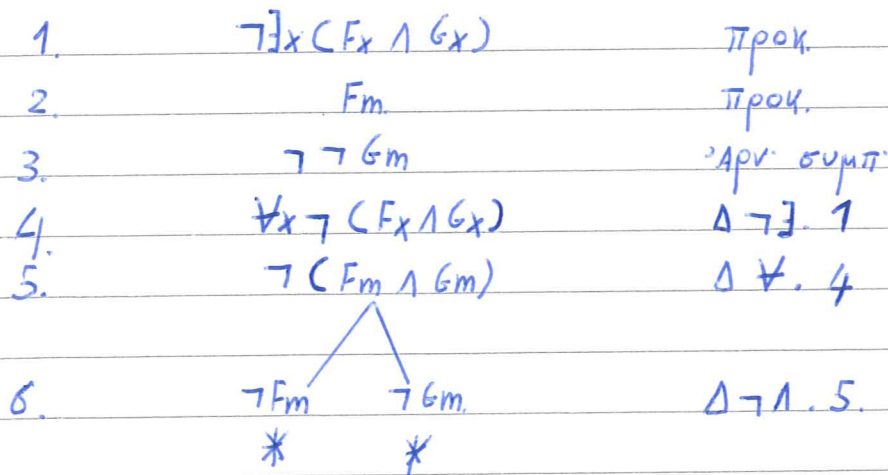 1. ¬∃x (Fx ∧ Gx) προκ.
2. Fm. προκ.
3. ¬¬Gm Ἀρν. συμπ.
4. ∀x¬(Fx∧Gx) Δ¬∃. 1
5. ¬(Fm ∧ Gm) Δ ∀. 4
6. ¬Fm ¬Gm. Δ¬∧. 5.
* *